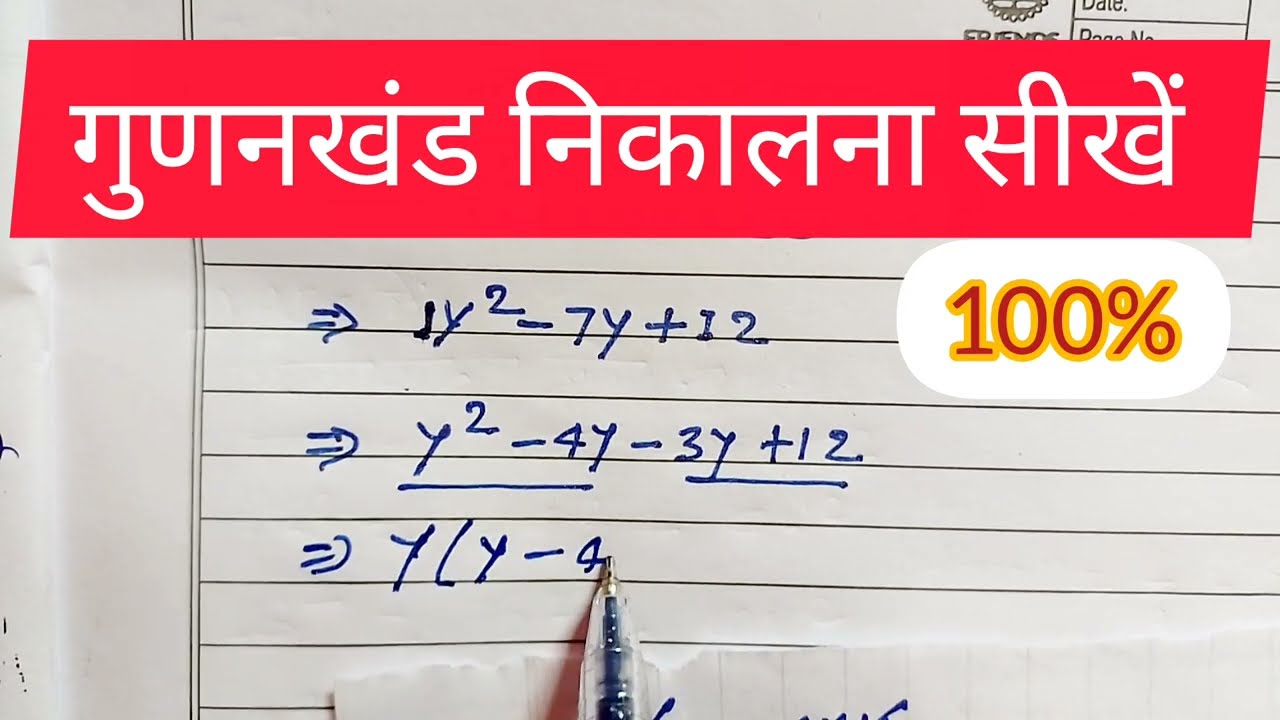 Date.
FRIENDS
Page No.
गुणनखंड निकालना सीखें
100%
⇒ 1y² - 7y + 12
⇒ y² - 4y - 3y + 12
⇒ y(y - 4